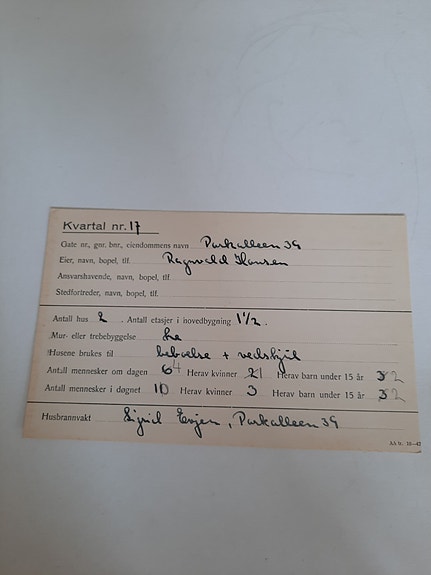 Kvartal nr. 17
Gate nr., gnr. bnr., eiendommens navn Parkalleen 39
Eier, navn, bopel, tlf. Ragnvald Hansen
Ansvarshavende, navn, bopel, tlf.
Stedfortreder, navn, bopel, tlf.
Antall hus 2. Antall etasjer i hovedbygning 1 1/2.
Mur- eller trebebyggelse tre
Husene brukes til beboelse + vedskjul
Antall mennesker om dagen 6 4 Herav kvinner 2 1 Herav barn under 15 år 3 2
Antall mennesker i døgnet 10 Herav kvinner 3 Herav barn under 15 år 3 2
Husbrannvakt Sigrid Evjen, Parkalleen 39